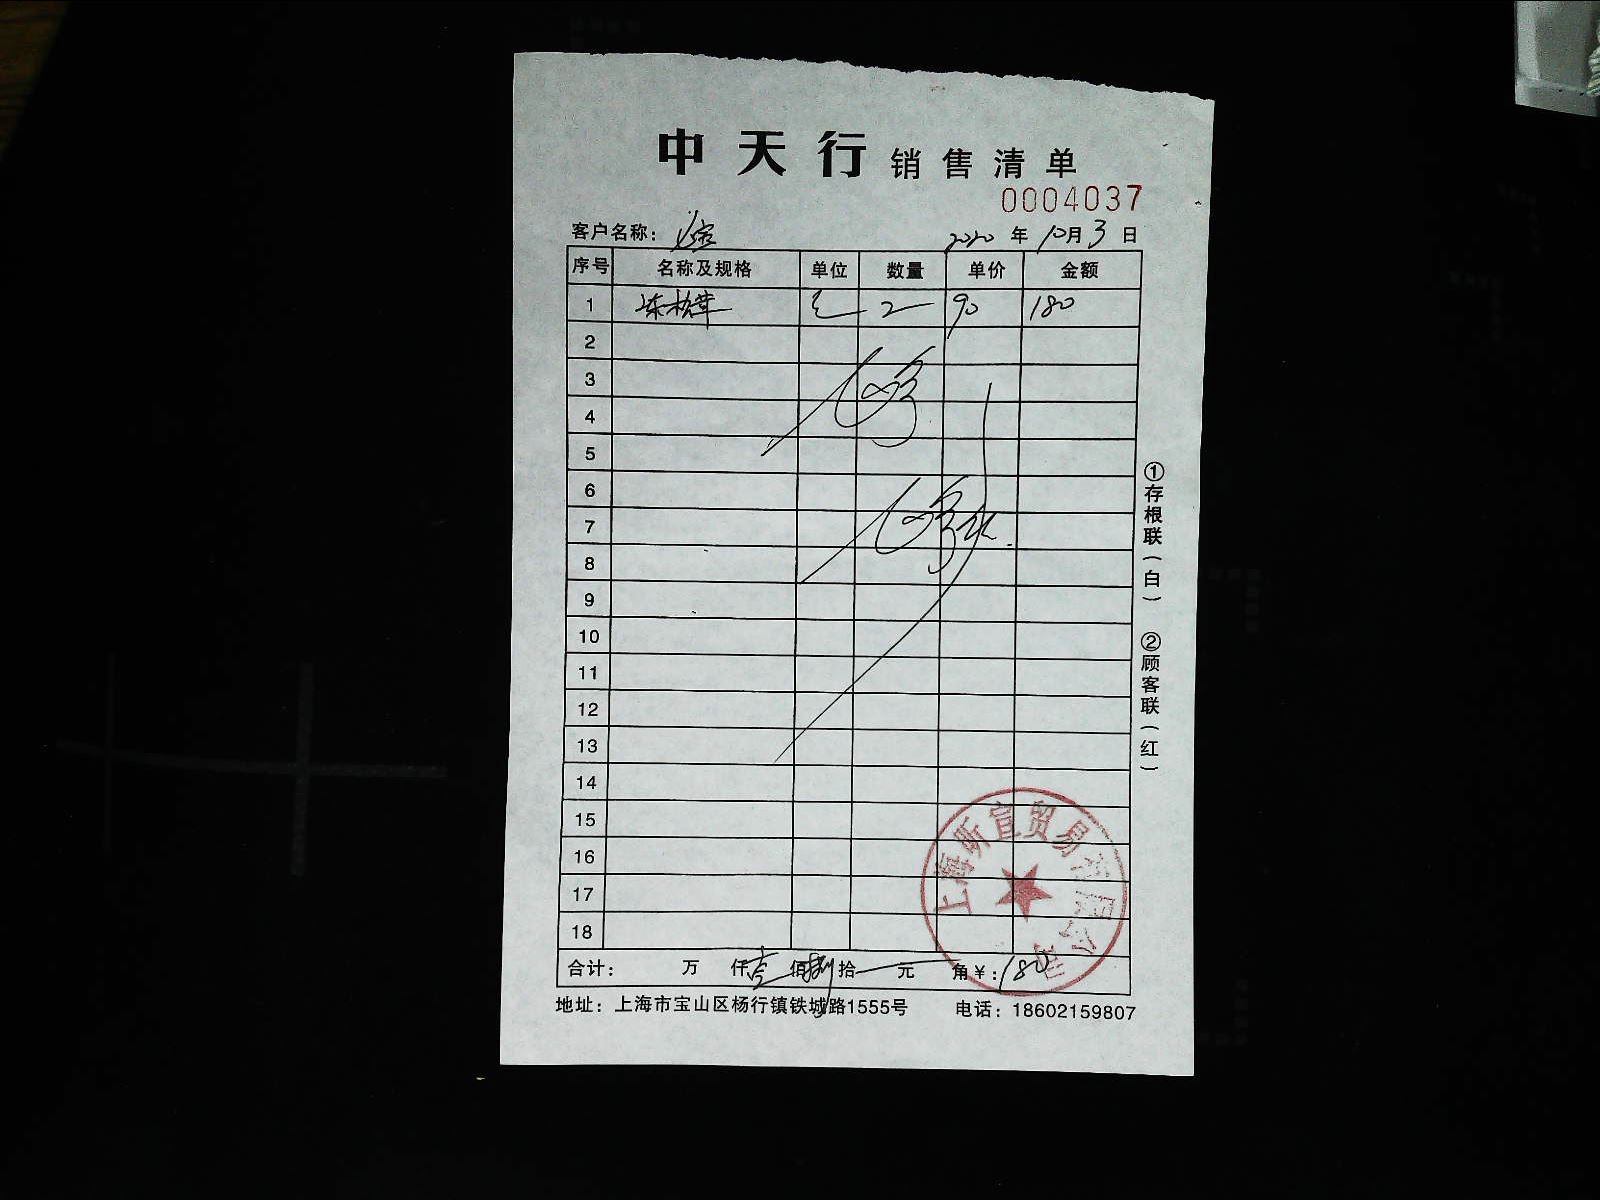 中天行 销售清单
0004037
客户名称： 2020 年 10 月 3 日
序号 名称及规格 单位 数量 单价 金额
1 冻松茸 2 90 180
2
3
4
5
6
7
8
9
10
11
12
13
14
15
16
17
18
合计： 万 仟 壹 佰 捌 拾 元 角 ￥：180
地址：上海市宝山区杨行镇铁城路1555号 电话：18602159807
①存根联（白） ②顾客联（红）
上海昕宣贸易有限公司